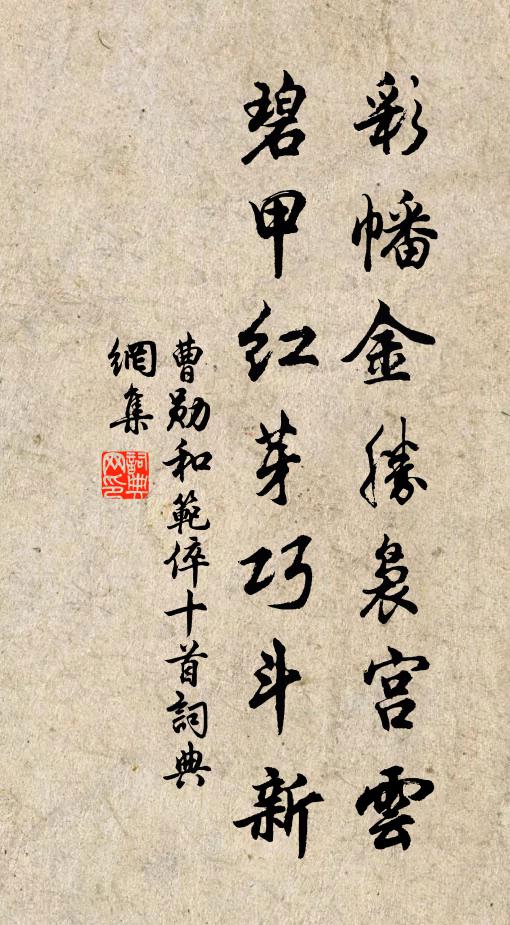 彩幡金勝裊宮雲
碧甲紅芽巧斗新
曹勛和範倅十首詞典
網集
詞典網印